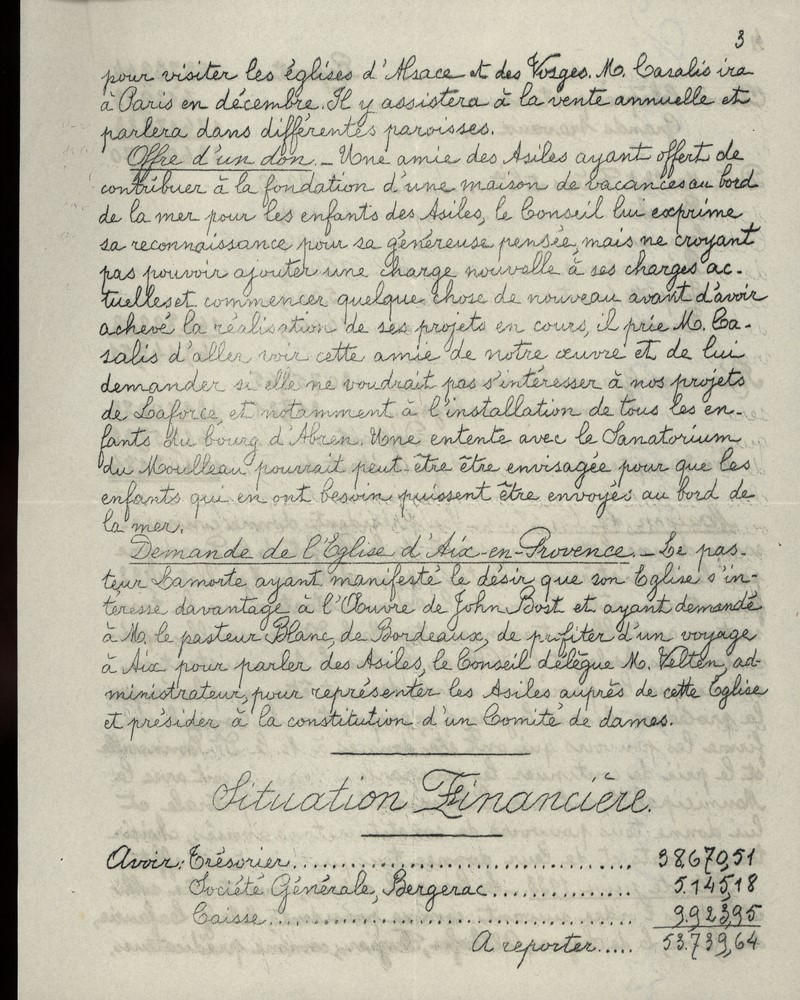 3
pour visiter les églises d'Alsace et des Vosges. M. Casalis ira
à Paris en décembre. Il y assistera à la vente annuelle et
parlera dans différentes paroisses.
Offre d'un don. _ Une amie des Asiles ayant offert de
contribuer à la fondation d'une maison de vacances au bord
de la mer pour les enfants des Asiles, le Conseil lui exprime
sa reconnaissance pour sa généreuse pensée, mais ne croyant
pas pouvoir ajouter une charge nouvelle à ses charges ac-
tuelles et commencer quelque chose de nouveau avant d'avoir
achevé la réalisation de ses projets en cours, il prie M. Ca-
salis d'aller voir cette amie de notre œuvre et de lui
demander si elle ne voudrait pas s'intéresser à nos projets
de Laforce, et notamment à l'installation de tous les en-
fants du bourg d'Abren. Une entente avec le Sanatorium
du Moulleau pourrait peut-être être envisagée pour que les
enfants qui en ont besoin puissent être envoyés au bord de
la mer.
Demande de l'Eglise d'Aix-en-Provence. _ Le pas-
teur Lamorte ayant manifesté le désir que son Eglise s'in-
téresse davantage à l'Œuvre de John Bost et ayant demandé
à M. le pasteur Blanc, de Bordeaux, de profiter d'un voyage
à Aix pour parler des Asiles, le Conseil délègue M. Velten, ad-
ministrateur, pour représenter les Asiles auprès de cette Eglise
et présider à la constitution d'un Comité de dames.
Situation Financière.
Avoir: Trésorier.................................... 38.670,51
Société Générale, Bergerac............... 5.145,18
Caisse....................................... 9.923,95
A reporter..... 53.739,64